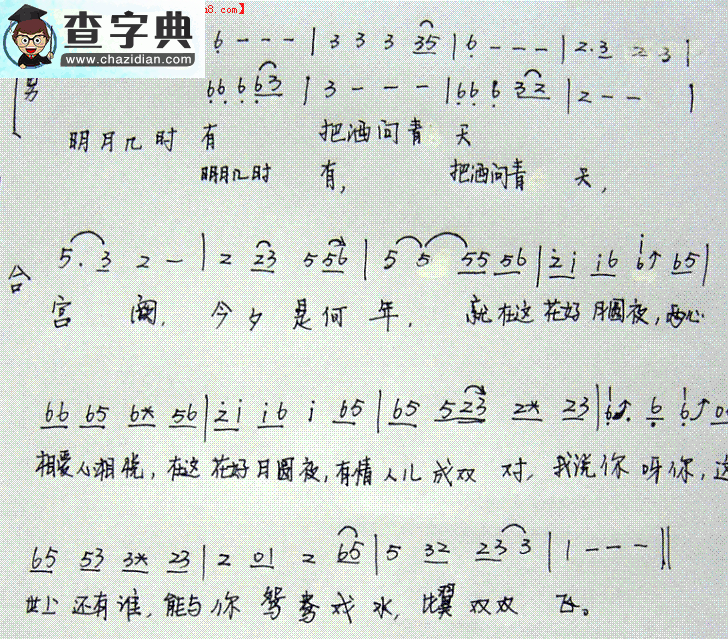 8.com】
查字典
www.chazidian.com
6 - - - | 3 3 3 35 | 6 - - - | 2·3 2 3 |
男 66 6 63 | 3 - - - | 66 6 32 | 2 - - |
明月几时 有 把酒问青 天
明月几时 有, 把酒问青 天,
合 5·3 2 - | 2 23 5 56 | 5 5 55 56 | 2i i6 6↑ 65 |
宫 阙, 今夕 是何 年, 就在这 花好 月圆夜, 两心
66 65 6* 56 | 2i i6 i 65 | 65 523 2* 23 | 6↑. 6 6↑ 0
相爱 心相悦, 在这 花好月圆夜, 有情 人儿 成双 对, 我说你 呀你, 这
65 53 3* 23 | 2 01 2 65 | 5 32 23 3 | 1 - - - ||
世上 还有谁, 能与 你 鸳鸯戏 水, 比翼 双双 飞。